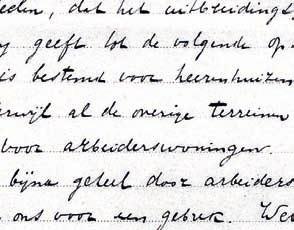 eden, dat het uitbreidings
geeft tot de volgende op
is bestemd voor heerenhuizen
erwijl al de overige terreinen
voor arbeiderswoningen.
bijna geheel door arbeiders
ons voor een gebrek. We